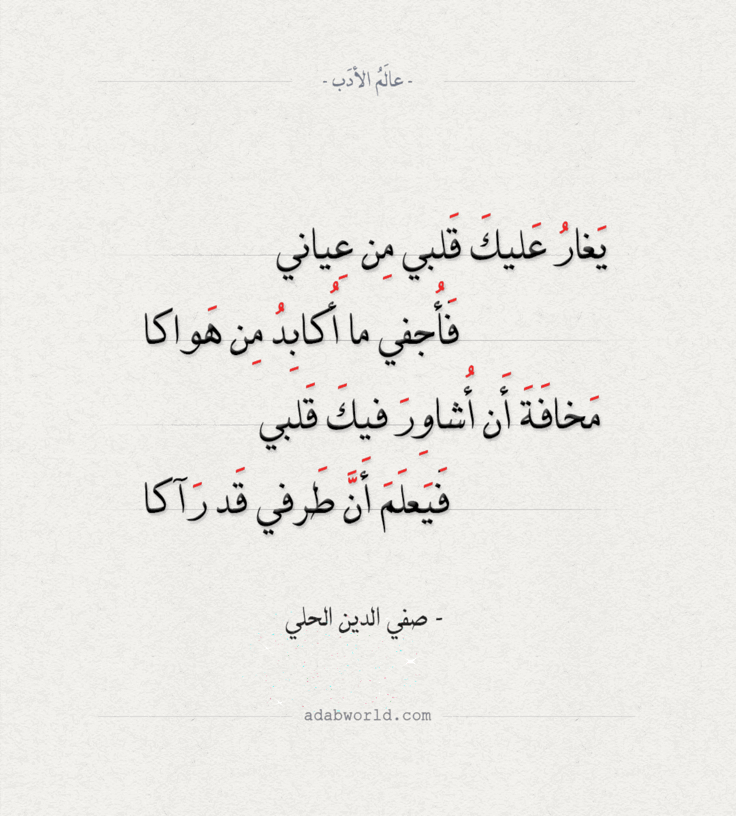 - عالَمُ الأدَب -
يَغارُ عَليكَ قَلبي مِن عِياني
فَأُجفي ما أُكابِدُ مِن هَواكا
مَخافَةَ أَن أُشاوِرَ فيكَ قَلبي
فَيَعلَمَ أَنَّ طَرفي قَد رَآكا
- صفي الدين الحلي
adabworld.com